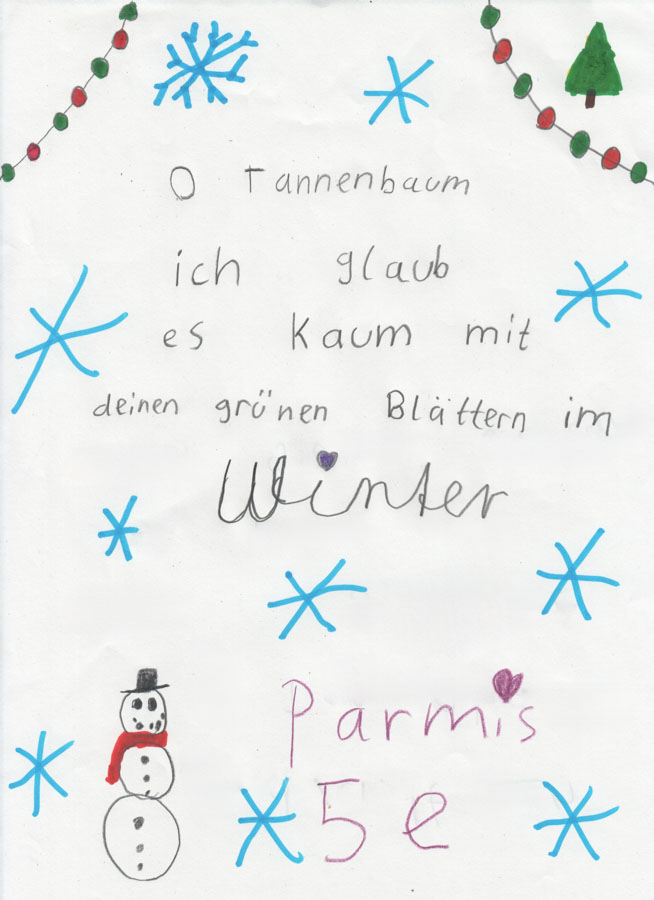 O Tannenbaum
ich glaub
es kaum mit
deinen grünen Blättern im
Winter
Parmis
5e